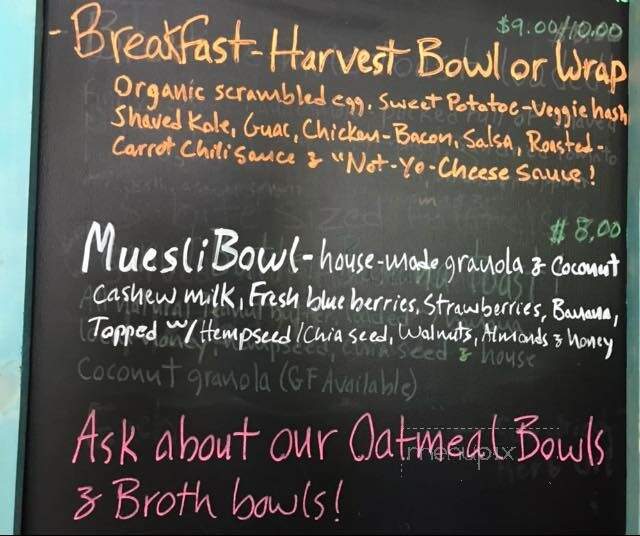 $9.00/10.00
- Breakfast - Harvest Bowl or Wrap
Organic scrambled egg, Sweet Potatoe-Veggie hash
Shaved Kale, Guac, Chicken-Bacon, Salsa, Roasted-
Carrot Chili Sauce & "Not-Yo-Cheese Sauce!
$8.00
Muesli Bowl - house-made granola & Coconut
Cashew milk, Fresh blueberries, Strawberries, Banana,
Topped w/ Hempseed/Chia seed, Walnuts, Almonds & honey
honey, hempseed, chia seed & house
Coconut granola (GF Available)
Ask about our Oatmeal Bowls
menupix
& Broth bowls!